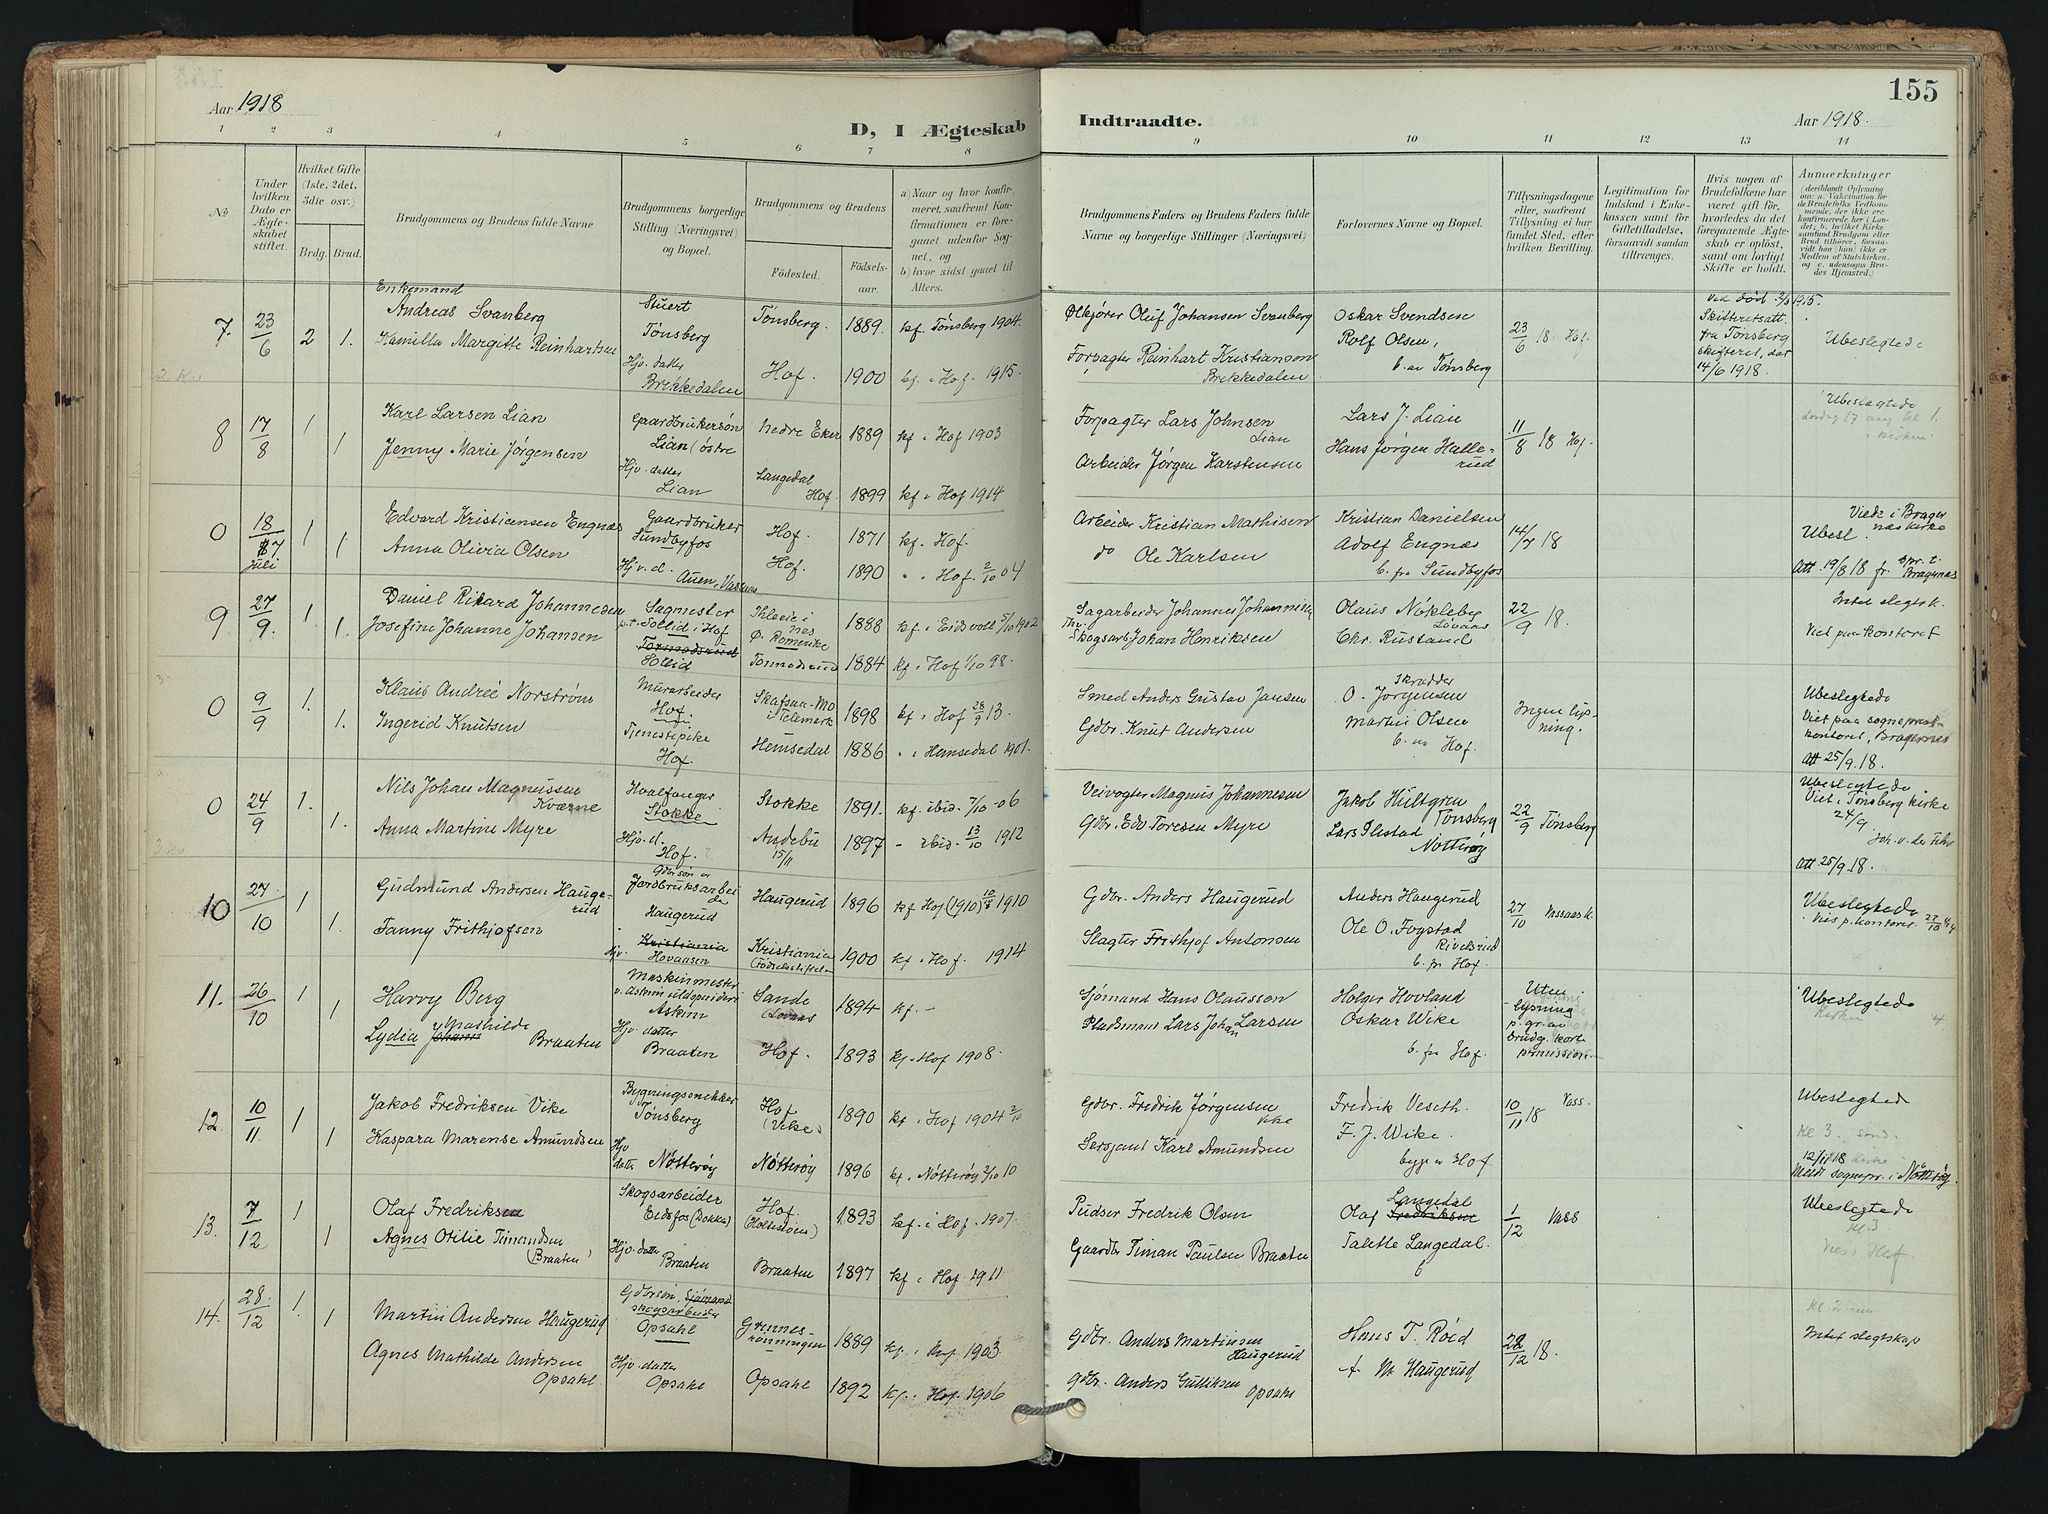 Aar 1918
D, I Ægteskab Indtraadte.
Aar 1918.
155
1 2 3 4 5 6 7 8 9 10 11 12 13 14
No
Under hvilken Dato er Ægteskabet stiftet.
Hvilket Gifte (1ste, 2det, 3die osv.)
Brdg. Brud.
Brudgommens og Brudens fulde Navne
Brudgommens borgerlige Stilling (Næringsvei) og Bopæl.
Brudgommens og Brudens
Födested.
Födsels-aar.
a) Naar og hvor konfirmeret, saafremt Konfirmationen er foregaaet udenfor Sognet, og
b) hvor sidst gaaet til Alters.
Brudgommens Faders og Brudens Faders fulde Navne og borgerlige Stillinger (Næringsvei)
Forlovernes Navne og Bopæl.
Tillysningsdagene eller, saafremt Tillysning ei har fundet Sted, efter hvilken Bevilling.
Legitimation for Indskud i Enkekassen samt for Giftetilladelse, forsaavidt saadan tiltrænges.
Hvis nogen af Brudefolkene har været gift för, hvorledes da det foregaaende Ægteskab er oplöst, samt om lovligt Skifte er holdt.
Anmærkninger
(deriblandt Oplysning om: a. Vaccination for de Brudefolks Vedkommende, der ikke ere konfirmerede her i Landet; b. hvilket Kirkesamfund Brudgom eller Brud tilhörer, forsaavidt han (hun) ikke er Medlem af Statskirken, og c. udensogns Brudes Hjemsted.)
7. 23/6 2 1.
Enkemand
Andreas Svanberg
Stuert
Tønsberg
Tønsberg. 1889. kf. Tønsberg 1904.
Ølkjører Oluf Johansen Svanberg
Oskar Svendsen
Rolf Olsen,
b. av Tønsberg
23/6 18. Hof.
Ved død 1915.
Skifteretsatt. fra Tønsberg skifteret, dat 14/6 1918.
Ubeslegtede
Kamilla Margitte Reinhartsen
Hjv. datter
Brekkedalen
Hof. 1900 kf. i Hof. 1915.
Forpagter Reinhart Kristiansen
Brekkedalen
8 17/8 1 1
Karl Larsen Lian
Gaardbrukersøn
Lian (østre
Nedre Eker 1889 kf. i Hof 1903
Forpagter Lars Johnsen
Lian
Lars J. Lian
11/8 18 Hof
Ubeslegtede
Jenny Marie Jørgensen
Hjv. datter
Lian
Langedal
Hof. 1899 kf. i Hof 1914
Arbeider Jørgen Karstensen
Hans Jørgen Hallerud
0 18/7 juli 1 1
Edvard Kristiansen Engnæs
Gaardbruker
Sundbyfos
Hof. 1871 kf. Hof.
Arbeider Kristian Mathisen
Kristian Danielsen
Adolf Engnæs
b. fra Sundbyfos
14/7 18
Ubesl. Viede i Bragernæs kirke
Att 19/8 18 fr. spr. t. Bragernæs
Anna Olivia Olsen
Hjv. d.
Hof. 1890 " " Hof. 2/10 04
do Ole Karlsen
9 27/9. 1. 1.
Daniel Rikard Johannesen
Sagmester
p.t. Sollid i Hof
1888 kf. i Eidsvold 5/10 1902
Ø. Romerike
Sagarbeider
Olaus Nøkleberg
Løvaas
Chr. Rustand
22/9 18.
Intet slegtsk.
Viet paa kontoret
Josefine Johanne Johansen
Sollid
Tormodsrud 1884 kf. i Hof 1/10 98.
Skogsarb Johan Henriksen
0 9/9 1. 1.
Klaus Andreé Norstrøm
Murarbeider
Hof.
Skafsaa - Mo
i Telemark 1898 kf. i Hof 28/9 13.
Smed Anders Gustav Jansen
O. Jørgensen
Skrædder
Martin Olsen
b. av Hof.
Ingen lysning.
Ubeslegtede
Viet paa sogneprestkontoret, Bragernes
Att 25/9. 18.
Ingerid Knutsen
Tjenestepike
Hof.
Hemsedal 1886 " i Hemsedal 1901.
Gdbr. Knut Andersen
0 24/9 1. 1.
Nils Johan Magnussen
Kværne
Hvalfanger
Stokke
Stokke 1891. kf. ibid. 7/10 -06
Veivogter Magnus Johannesen
Jakob Hultgren
Tønsberg
22/9 Tønsberg
Ubeslegtede
Viet i Tønsberg kirke
24/9.
Att 25/9. 18.
Anna Martine Myre
Hjv. d.
Hof.
Andebu
15/11 1897 - ibid. 13/10 1912
Gdbr. Edv Toresen Myre
Nøtterøy
10 27/10 1 1.
Gudmund Andersen Haugerud
Gdbrsøn er
Jordbruksarbeide
Haugerud
Haugerud 1896 kf Hof (1910) 10/8 1910
Gdbr. Anders Haugerud
Anders Haugerud
Ole O. Fogstad
b. fra Hof.
27/10 Vassaas k.
Ubeslegtede
Viet p. kontoret 27/10
Fanny Frithjofsen
Hjv. Kristiania
Hovaasen
Kristiania
(Fødselsstiftelsen 1900 kf. i Hof. 1914
Slagter Frithjof Antonsen
11. 26/10 1 1
Harry Berg
Maskinmester
v. Askim uldspinderi
Askim
Sande
(Lovaas 1894 kf. -
Sjømand Hans Olaussen
Holger Hovland
Oskar Wike
b. fra Hof.
Uten lysning p. gr. av brudg. korte permission
Ubeslegtede
Lydia Mathilde Braaten
Hjv. datter
Braaten
Hof. 1893 kf. Hof 1908.
Pladsmann Lars Johan Larsen
12. 10/11. 1 1
Jakob Fredriksen Vike
Bygningssnekker
Tønsberg
Hof
(Vike) 1890 kf. i Hof 1904 2/10
Gdbr. Fredrik Jørgensen
Vike
Fredrik Veseth.
F. J. Wike.
begge av Hof
10/11 18 Vass.
Ubeslegtede
Kl 3.
12/11 18
Meldt sognepr. i Nøtterøy
Kaspara Marense Amundsen
Hjv datter Nøtterøy
Nøtterøy 1896 kf. i Nøtterøy 2/10 10
Sersjant Karl Amundsen
13. 7/12 1 1
Olaf Fredriksen
Skogsarbeider
Eidsfos (Dokka)
Hof. 1893 kf. i Hof. 1907.
Pudser Fredrik Olsen
Olaf Langedal
Talette Langedal.
1/12 Vass
Ubeslegtede
Kl. 3
Vies i Hof
Agnes Otilie Timandsen
(Braaten)
Hjv. datter
Braaten
Braaten 1897 kf. i Hof 1911
Gaardbr Timan Paulsen Braaten
14. 28./12 1. 1
Martin Andersen Haugerud
Gdbrsøn, Sjømand
skogsarbeider
Opsahl
Grennesrønningen 1889 kf. i Hof. 1903
Gdbr. Anders Martinsen
Haugerud
Hans T. Røed
A M Haugerud
22/12 18.
Intet slegtskap
Agnes Mathilde Andersen
Opsahl.
Hjv. datter
Opsahl
Opsahl 1892 kf. i Hof. 1906
Gdbr. Anders Gulliksen
Opsahl